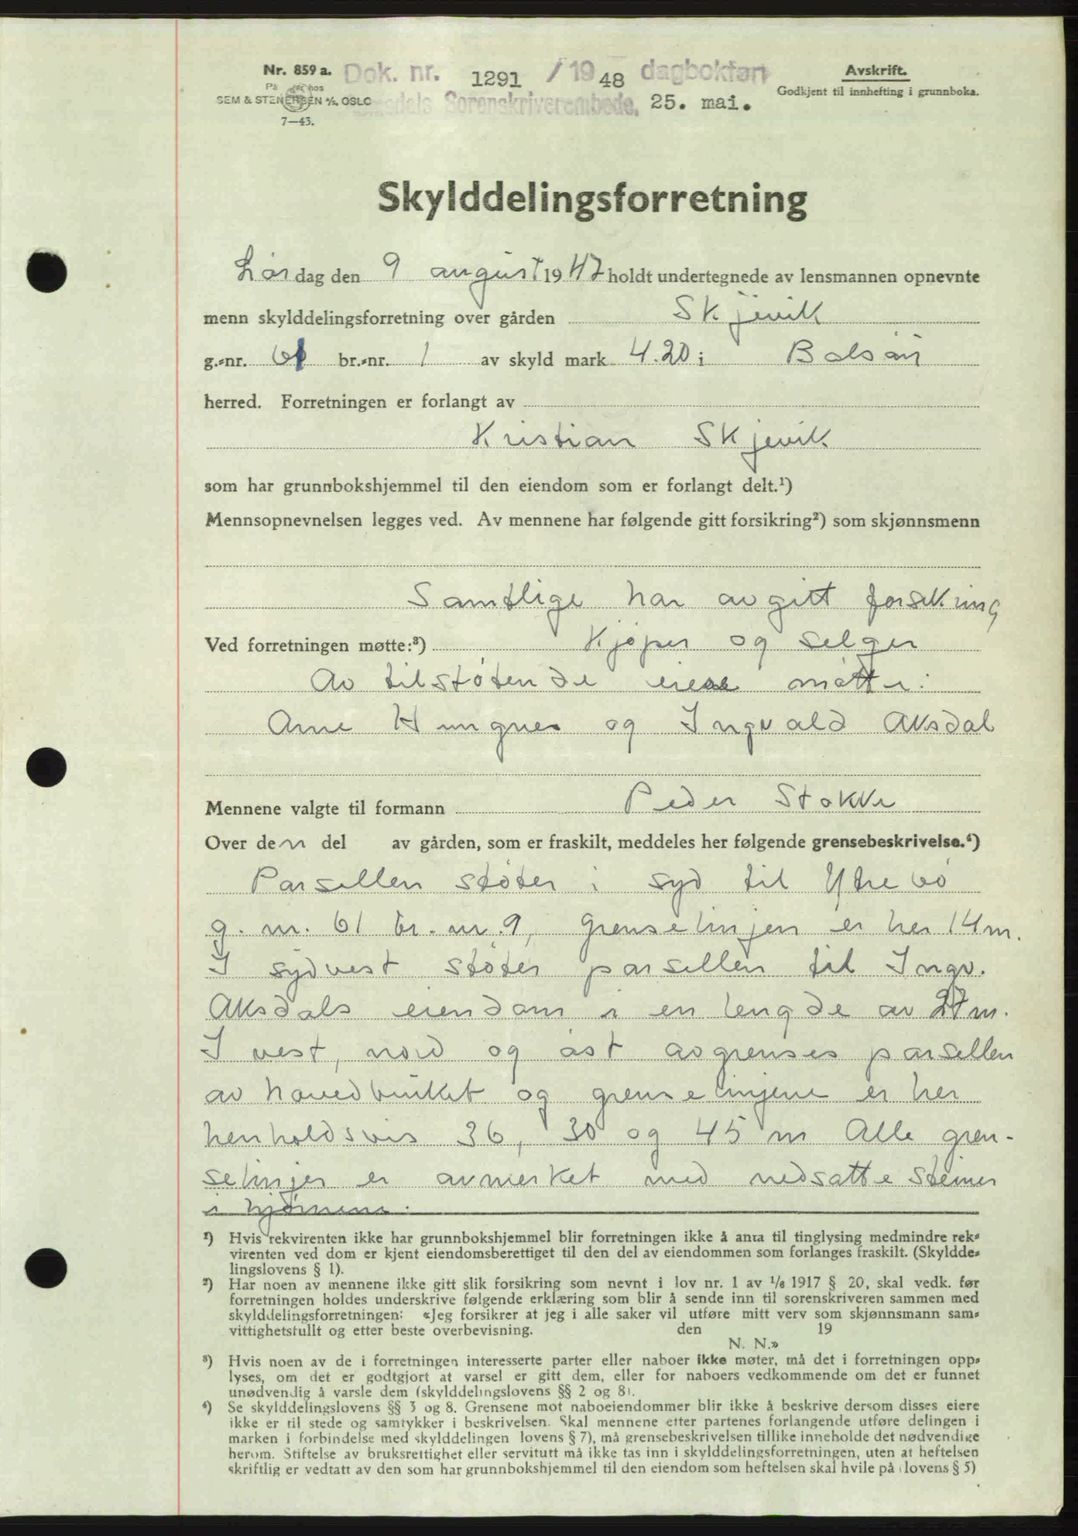 Nr. 859 a.
På hos
SEM & STENERSEN A/S, OSLO
7—43.
Dok. nr. 1291 / 1948 dagbokført
Sorenskriverembede. 25. mai.
Avskrift.
Godkjent til innhefting i grunnboka.
Skylddelingsforretning
Lørdag den 9 august 1947 holdt undertegnede av lensmannen opnevnte
menn skylddelingsforretning over gården Skjevik
g.-nr. 61 br.-nr. 1 av skyld mark 4.20 i Bolsøy
herred. Forretningen er forlangt av
Kristian Skjevik
som har grunnbokshjemmel til den eiendom som er forlangt delt.¹)
Mennsopnevnelsen legges ved. Av mennene har følgende gitt forsikring²) som skjønnsmenn
Samtlige har avgitt forsikring
Ved forretningen møtte:³) Kjøper og selger
Av tilstøtende eiere møtte:
Arne Hungnes og Ingvald Aksdal
Mennene valgte til formann Peder Stokke
Over den del av gården, som er fraskilt, meddeles her følgende grensebeskrivelse.⁴)
Parsellen støter i syd til Ytrebø
g. nr. 61 br. nr. 9, grenselinjen er her 14 m.
I sydvest støter parsellen til Ingv.
Aksdals eiendom i en lengde av 27 m.
I vest, nord og øst avgrenses parsellen
av hovedbruket og grenselinjene er her
henholdsvis 36, 30 og 45 m Alle gren-
selinjer er avmerket med nedsatte steiner
i hjørnene.
¹) Hvis rekvirenten ikke har grunnbokshjemmel blir forretningen ikke å anta til tinglysing medmindre rek-
virenten ved dom er kjent eiendomsberettiget til den del av eiendommen som forlanges fraskilt. (Skyldde-
lingslovens § 1).
²) Har noen av mennene ikke gitt slik forsikring som nevnt i lov nr. 1 av ¹/₆ 1917 § 20, skal vedk. før
forretningen holdes underskrive følgende erklæring som blir å sende inn til sorenskriveren sammen med
skylddelingsforretningen: «Jeg forsikrer at jeg i alle saker vil utføre mitt verv som skjønnsmann sam-
vittighetsfullt og etter beste overbevisning. den 19
N. N.»
³) Hvis noen av de i forretningen interesserte parter eller naboer ikke møter, må det i forretningen opp-
lyses, om det er godtgjort at varsel er gitt dem, eller for naboers vedkommende om det er funnet
unødvendig å varsle dem (skylddelingslovens §§ 2 og 8).
⁴) Se skylddelingslovens §§ 3 og 8. Grensene mot naboeiendommer blir ikke å beskrive dersom disses eiere
ikke er til stede og samtykker i beskrivelsen. Skal mennene etter partenes forlangende utføre delingen i
marken i forbindelse med skylddelingen lovens § 7), må grensebeskrivelsen tillike inneholde det nødvendige
herom. Stiftelse av bruksrettighet eller servitutt må ikke tas inn i skylddelingsforretningen, uten at heftelsen
skriftlig er vedtatt av den som har grunnbokshjemmel til den eiendom som heftelsen skal hvile på lovens § 5)